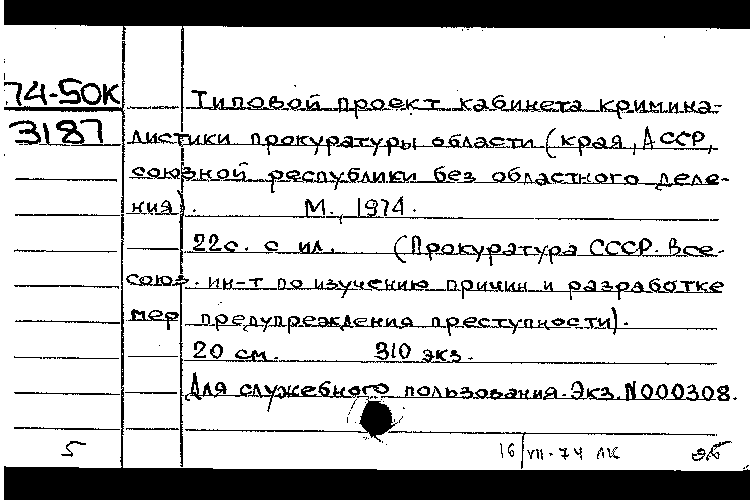 74-50К Типовой проект кабинета кримина-
3187 листики прокуратуры области (края, АССР,
союзной республики без областного деле-
ния). М., 1974.
22с. с ил. (Прокуратура СССР. Все-
союз. ин-т по изучению причин и разработке
мер предупреждения преступности).
20 см. 310 экз.
Для служебного пользования. Экз. N000308.
5 16/VII-74 ЛК